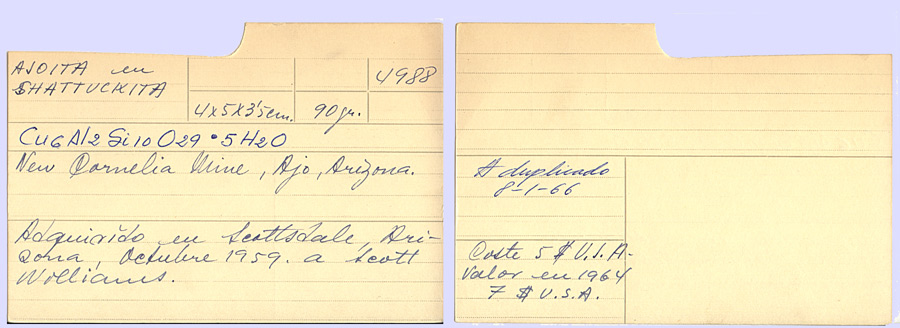 AJOITA en
SHATTUCKITA
4988
4x5x3'5cm.
90gr.
Cu6 Al2 Si10 O29 • 5H2O
New Cornelia Mine, Ajo, Arizona.
Adquirido en Scottsdale, Ari-
zona, Octubre 1959. a Scott
Williams.
# duplicado
8-1-66
Coste 5 $ U.S.A.
Valor en 1964
7 $ U.S.A.